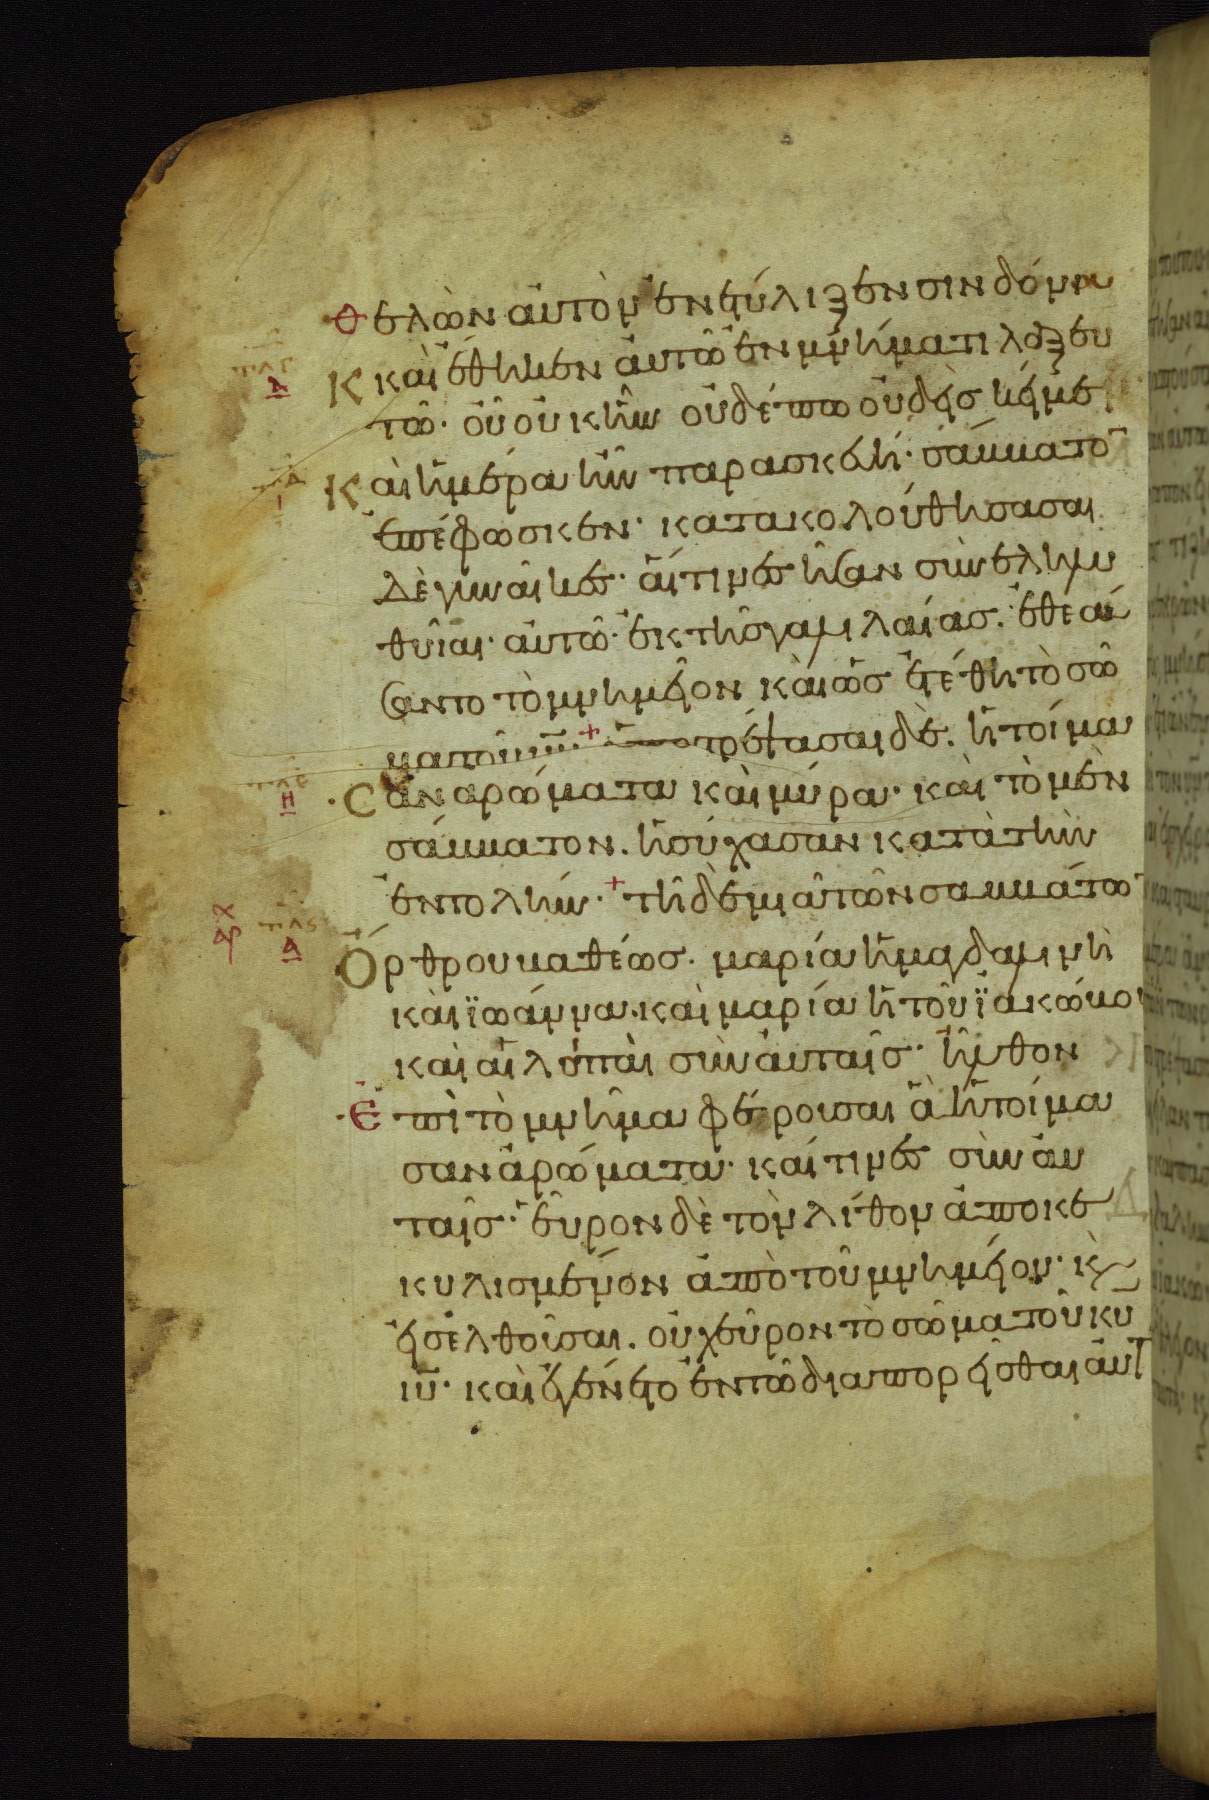 θελὼν αὐτὸν ἐνετύλιξεν σινδόνι
κ καὶ ἔθηκεν αὐτῶ ἐν μνήματι λαξευ
τῶ· οὗ οὐκ ἦν οὐδέπω οὐδεὶς κείμε
Καὶ ἡμέρα ἦν παρασκευή· σάββατο
ἐπέφωσκεν· κατακολούθησασαι
δὲ γυναῖκες· αἵτινες ἦσαν συνεληλυ
θυῖαι· αὐτῶ· ἐκ τῆς γαλιλαίας· ἐθεά
σαντο τὸ μνημεῖον καὶ ὡς ἐτέθη τὸ σῶ
μα τοῦ ιυ· + ὑποστρέψασαι δὲ· ἡτοίμα
Σαν ἀρώματα καὶ μύρα· καὶ τὸ μὲν
σάββατον· ἡσύχασαν κατὰ τὴν
ἐντολήν· + τῆ δὲ μιᾶ τῶν σαββάτω
Ὄρθρου βαθέως· μαρία ἡ μαγδαληνὴ
καὶ ϊωάννα· καὶ μαρία ἡ τοῦ ϊακώβου
καὶ αἱ λοιπαὶ σὺν αὐταῖς· ἦλθον
Ἐπὶ τὸ μνῆμα φέρουσαι ἃ ἡτοίμα
σαν ἀρώματα· καί τινες σὺν αὐ
ταῖς· εὗρον δὲ τὸν λίθον ἀποκε
κυλισμένον ἀπὸ τοῦ μνημείου· κὶ
εἰσελθοῦσαι· οὐχ εὗρον τὸ σῶμα τοῦ κυ
ιυ· καὶ ἐγένετο ἐν τῶ διαπορεῖσθαι αὐτ